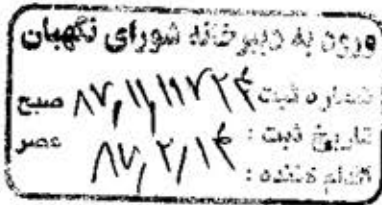 ورود به دبیرخانه شورای نگهبان
شماره ثبت: صبح
تاریخ ثبت: ۸۷/۲/۱۴ عصر
اقدام کننده: